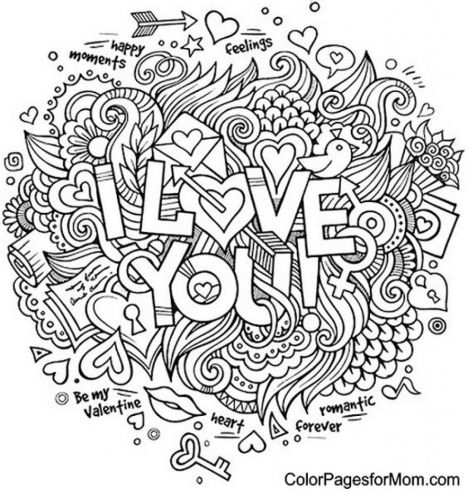 happy
moments
feelings
I LOVE
YOU!
Be my
Valentine
heart
forever
romantic
ColorPagesforMom.com